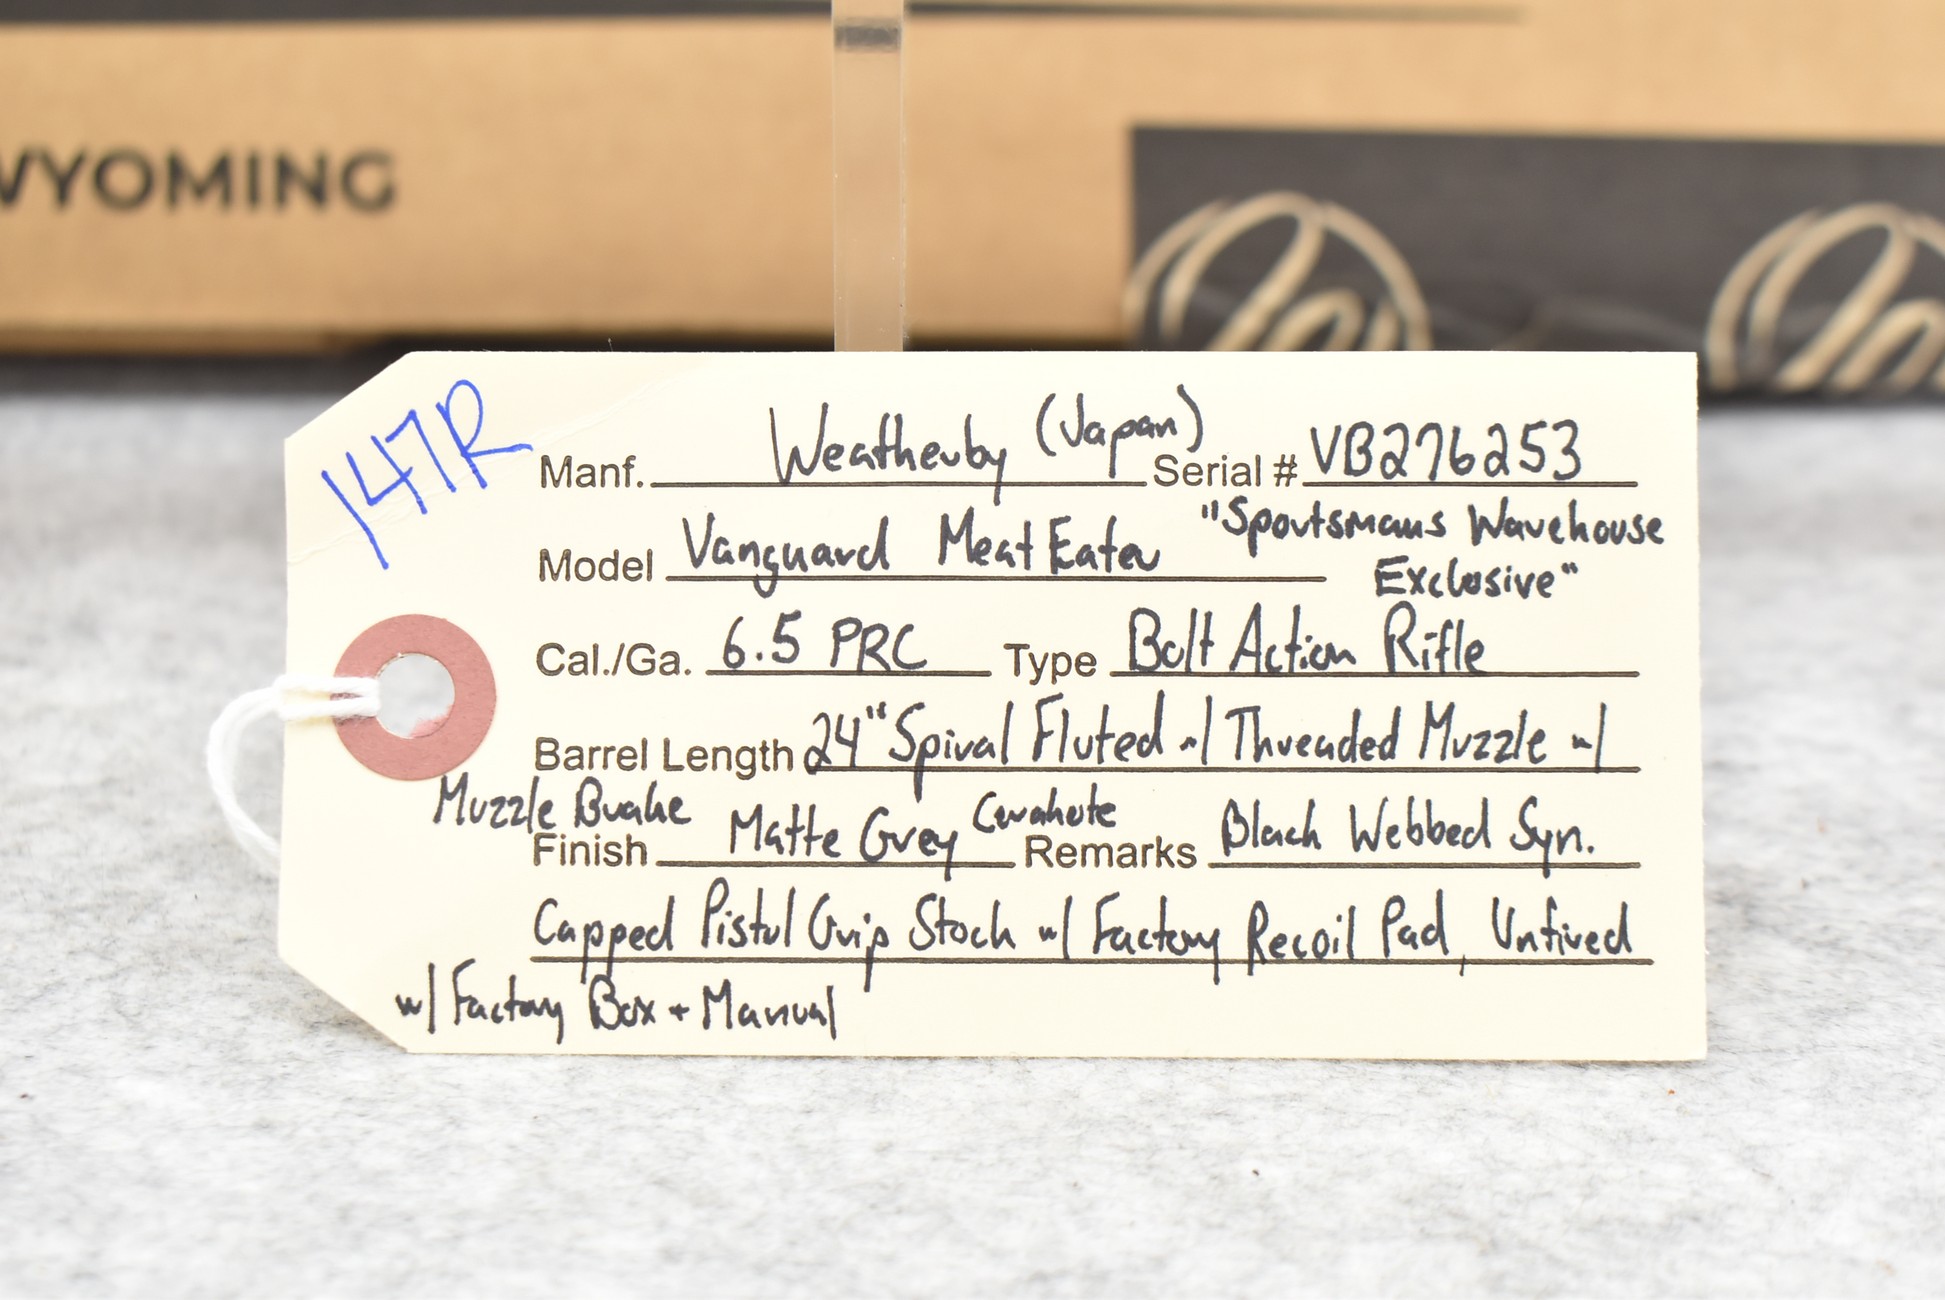 WYOMING
147R
Manf. Weatherby (Japan) Serial # VB276253
Model Vanguard MeatEater "Sportsmans Warehouse
Exclusive"
Cal./Ga. 6.5 PRC Type Bolt Action Rifle
Barrel Length 24" Spiral Fluted w/ Threaded Muzzle w/
Muzzle Brake
Finish Matte Grey Cerakote Remarks Black Webbed Syn.
Capped Pistol Grip Stock w/ Factory Recoil Pad, Unfired
w/ Factory Box + Manual